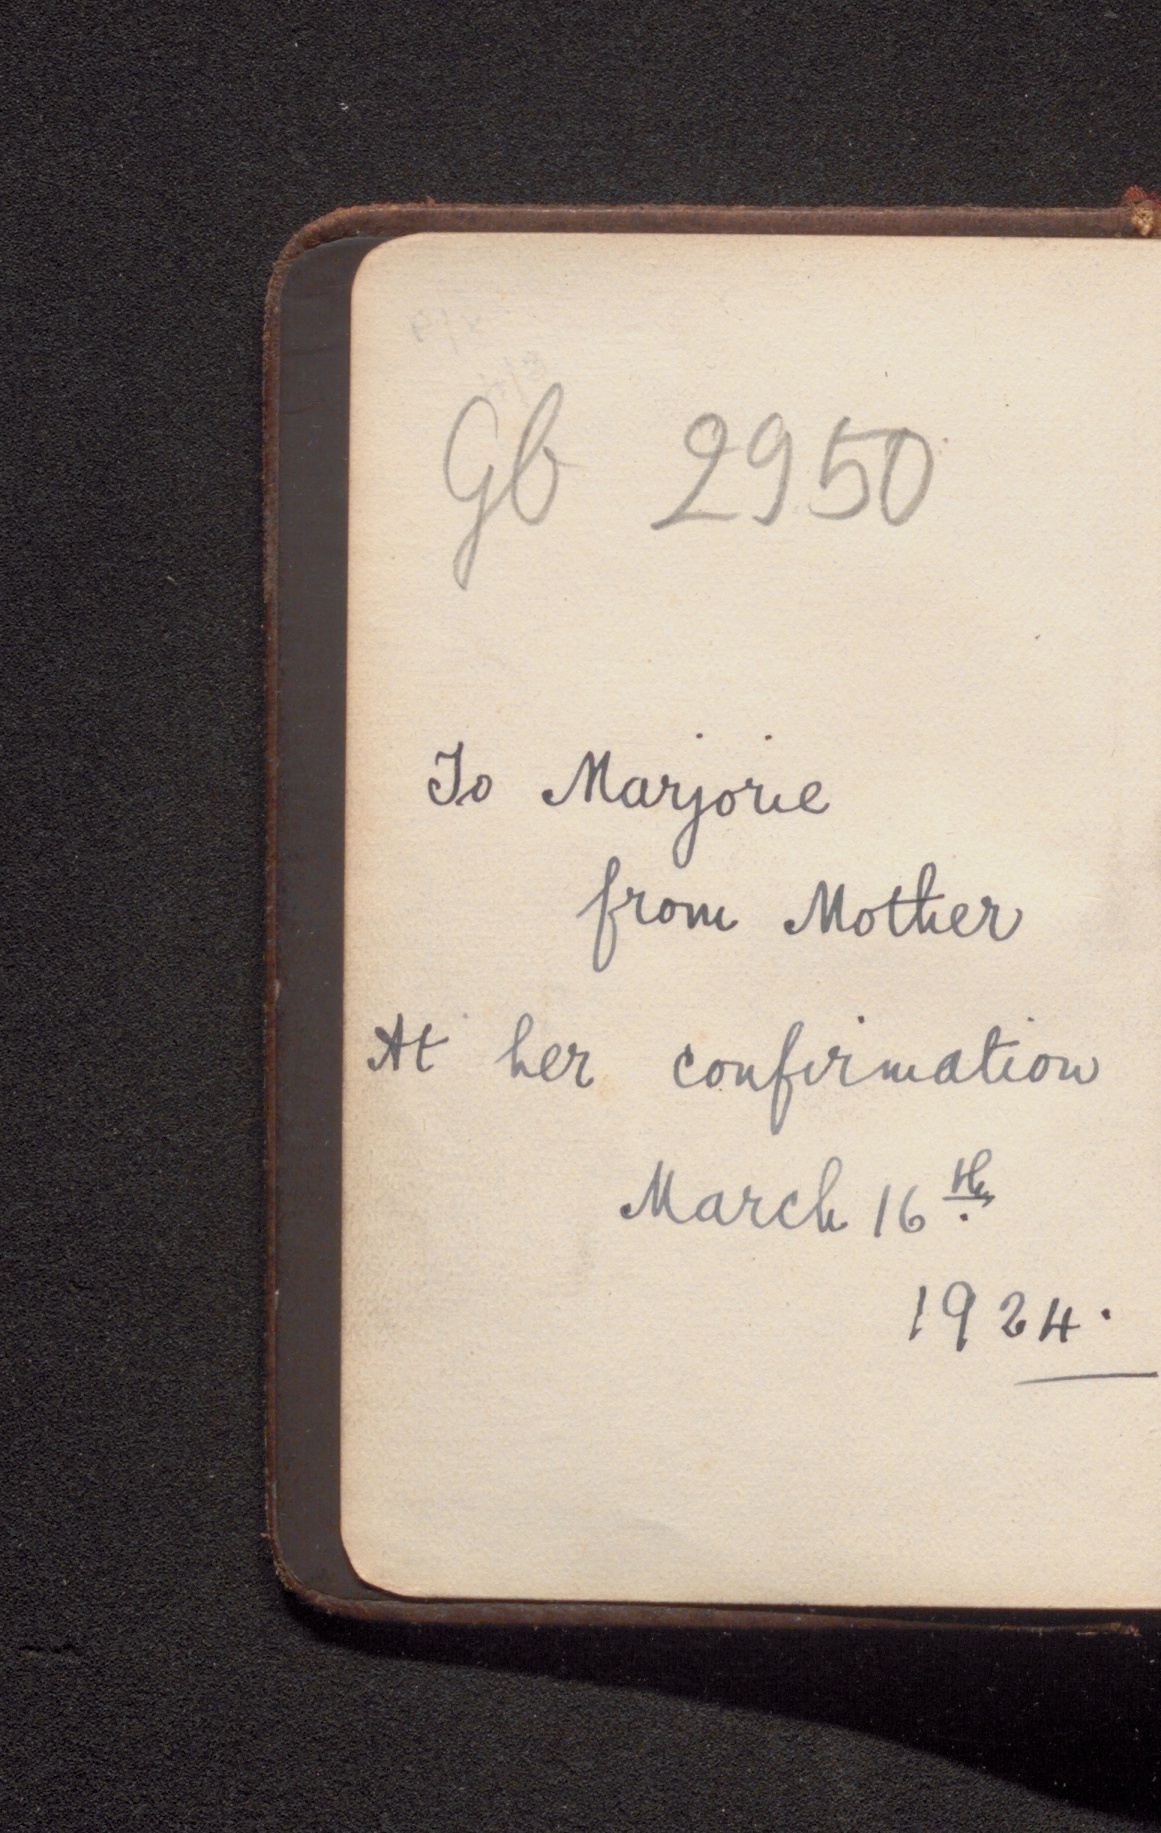 Gb 2950
To Marjorie
from Mother
At her confirmation
March 16th.
1924.